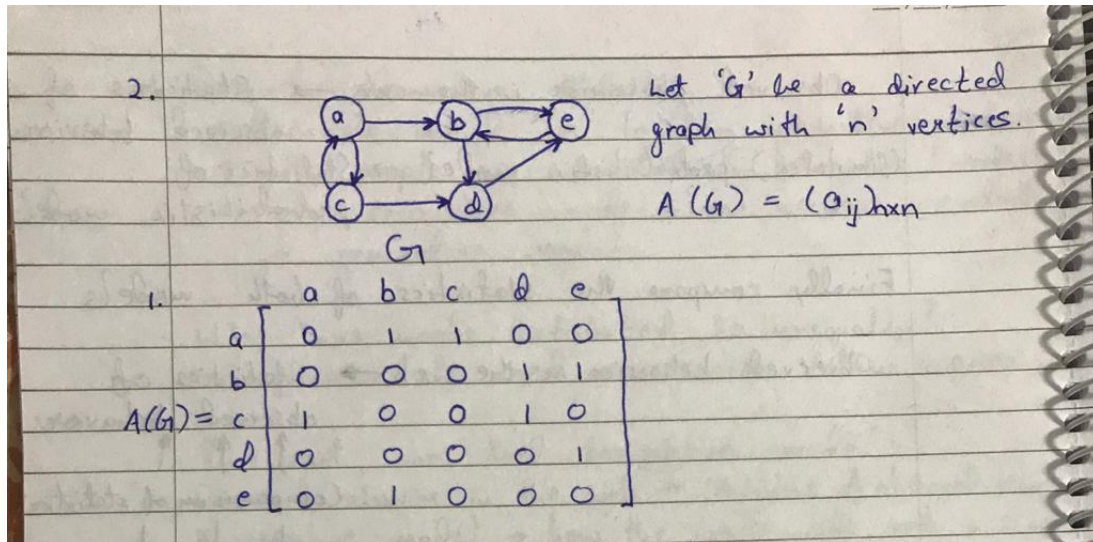 2.
Let 'G' be a directed
graph with 'n' vertices.
A (G) = (aij)nxn
a b e
c d
G
1.
a b c d e
a 0 1 1 0 0
b 0 0 0 1 1
A(G) = c 1 0 0 1 0
d 0 0 0 0 1
e 0 1 0 0 0